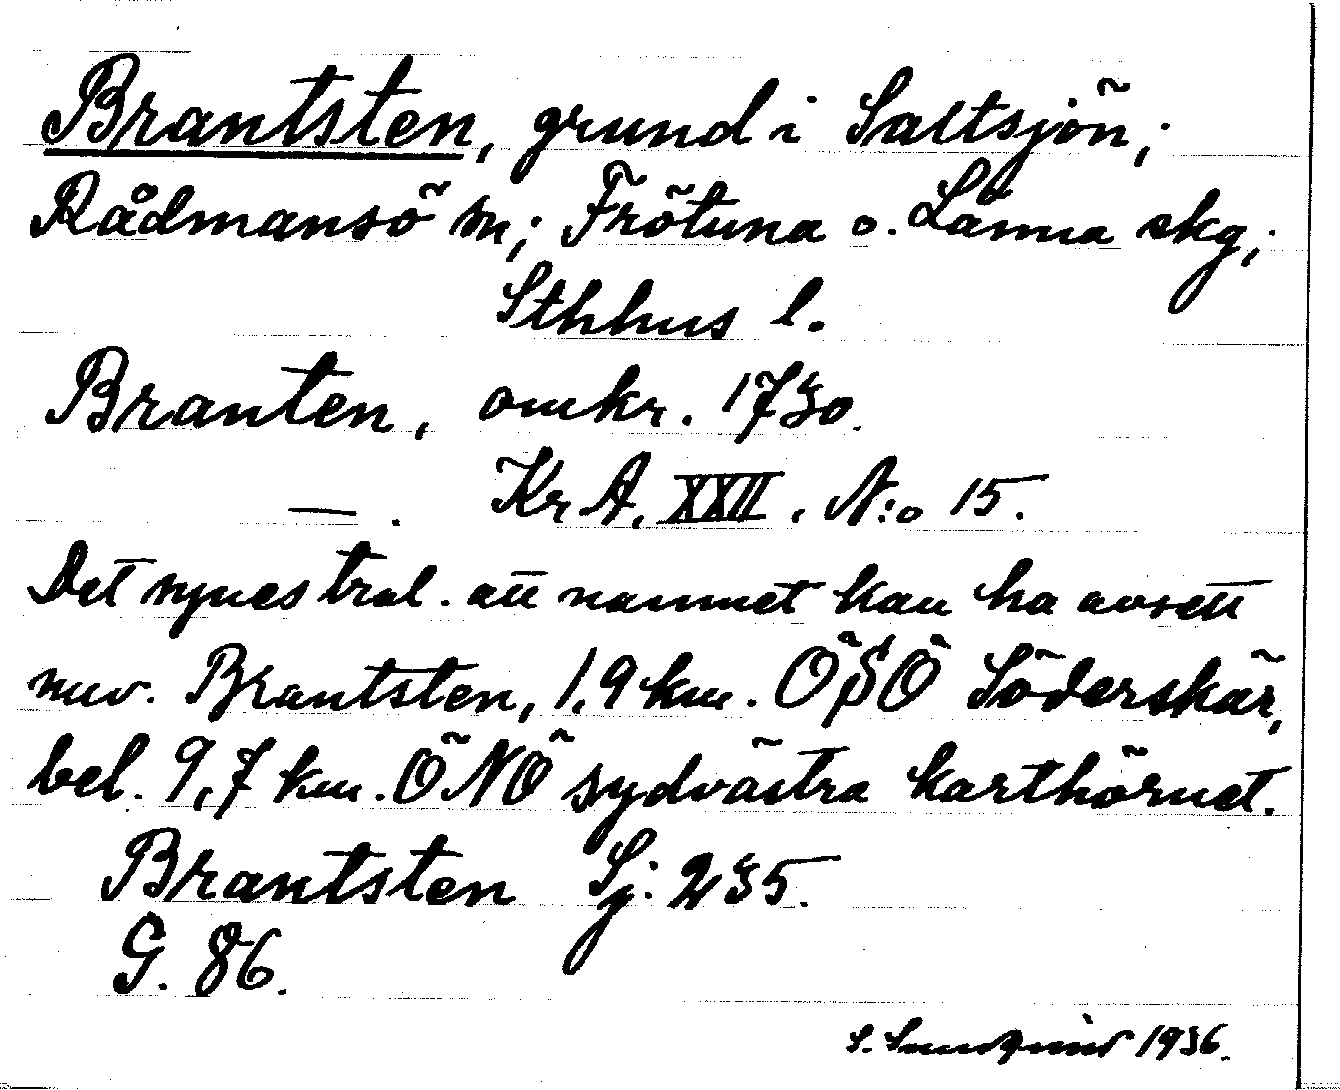 Brantsten, grund i Saltsjön;
Rådmansö sn; Frötuna o. Länna skg;
Sthhus l.
Branten, omkr. 1730.
— . Kr A. XXII. N:o 15.
Det synes trol. att namnet kan ha avsett
nuv. Brantsten, 1,9 km. ÖSÖ Söderskär,
bel. 9,7 km. ÖNÖ sydvästra karthörnet.
Brantsten Sj: 235.
G. 86.
S. Sundqvist 1936.